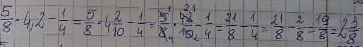 5/8 · 4,2 - 1/4 = 5/8 · 4 2/10 - 1/4 = 5/8 · 42/10 - 1/4 = 21/8 - 1/4 = 21/8 - 2/8 = 19/8 = 2 3/8